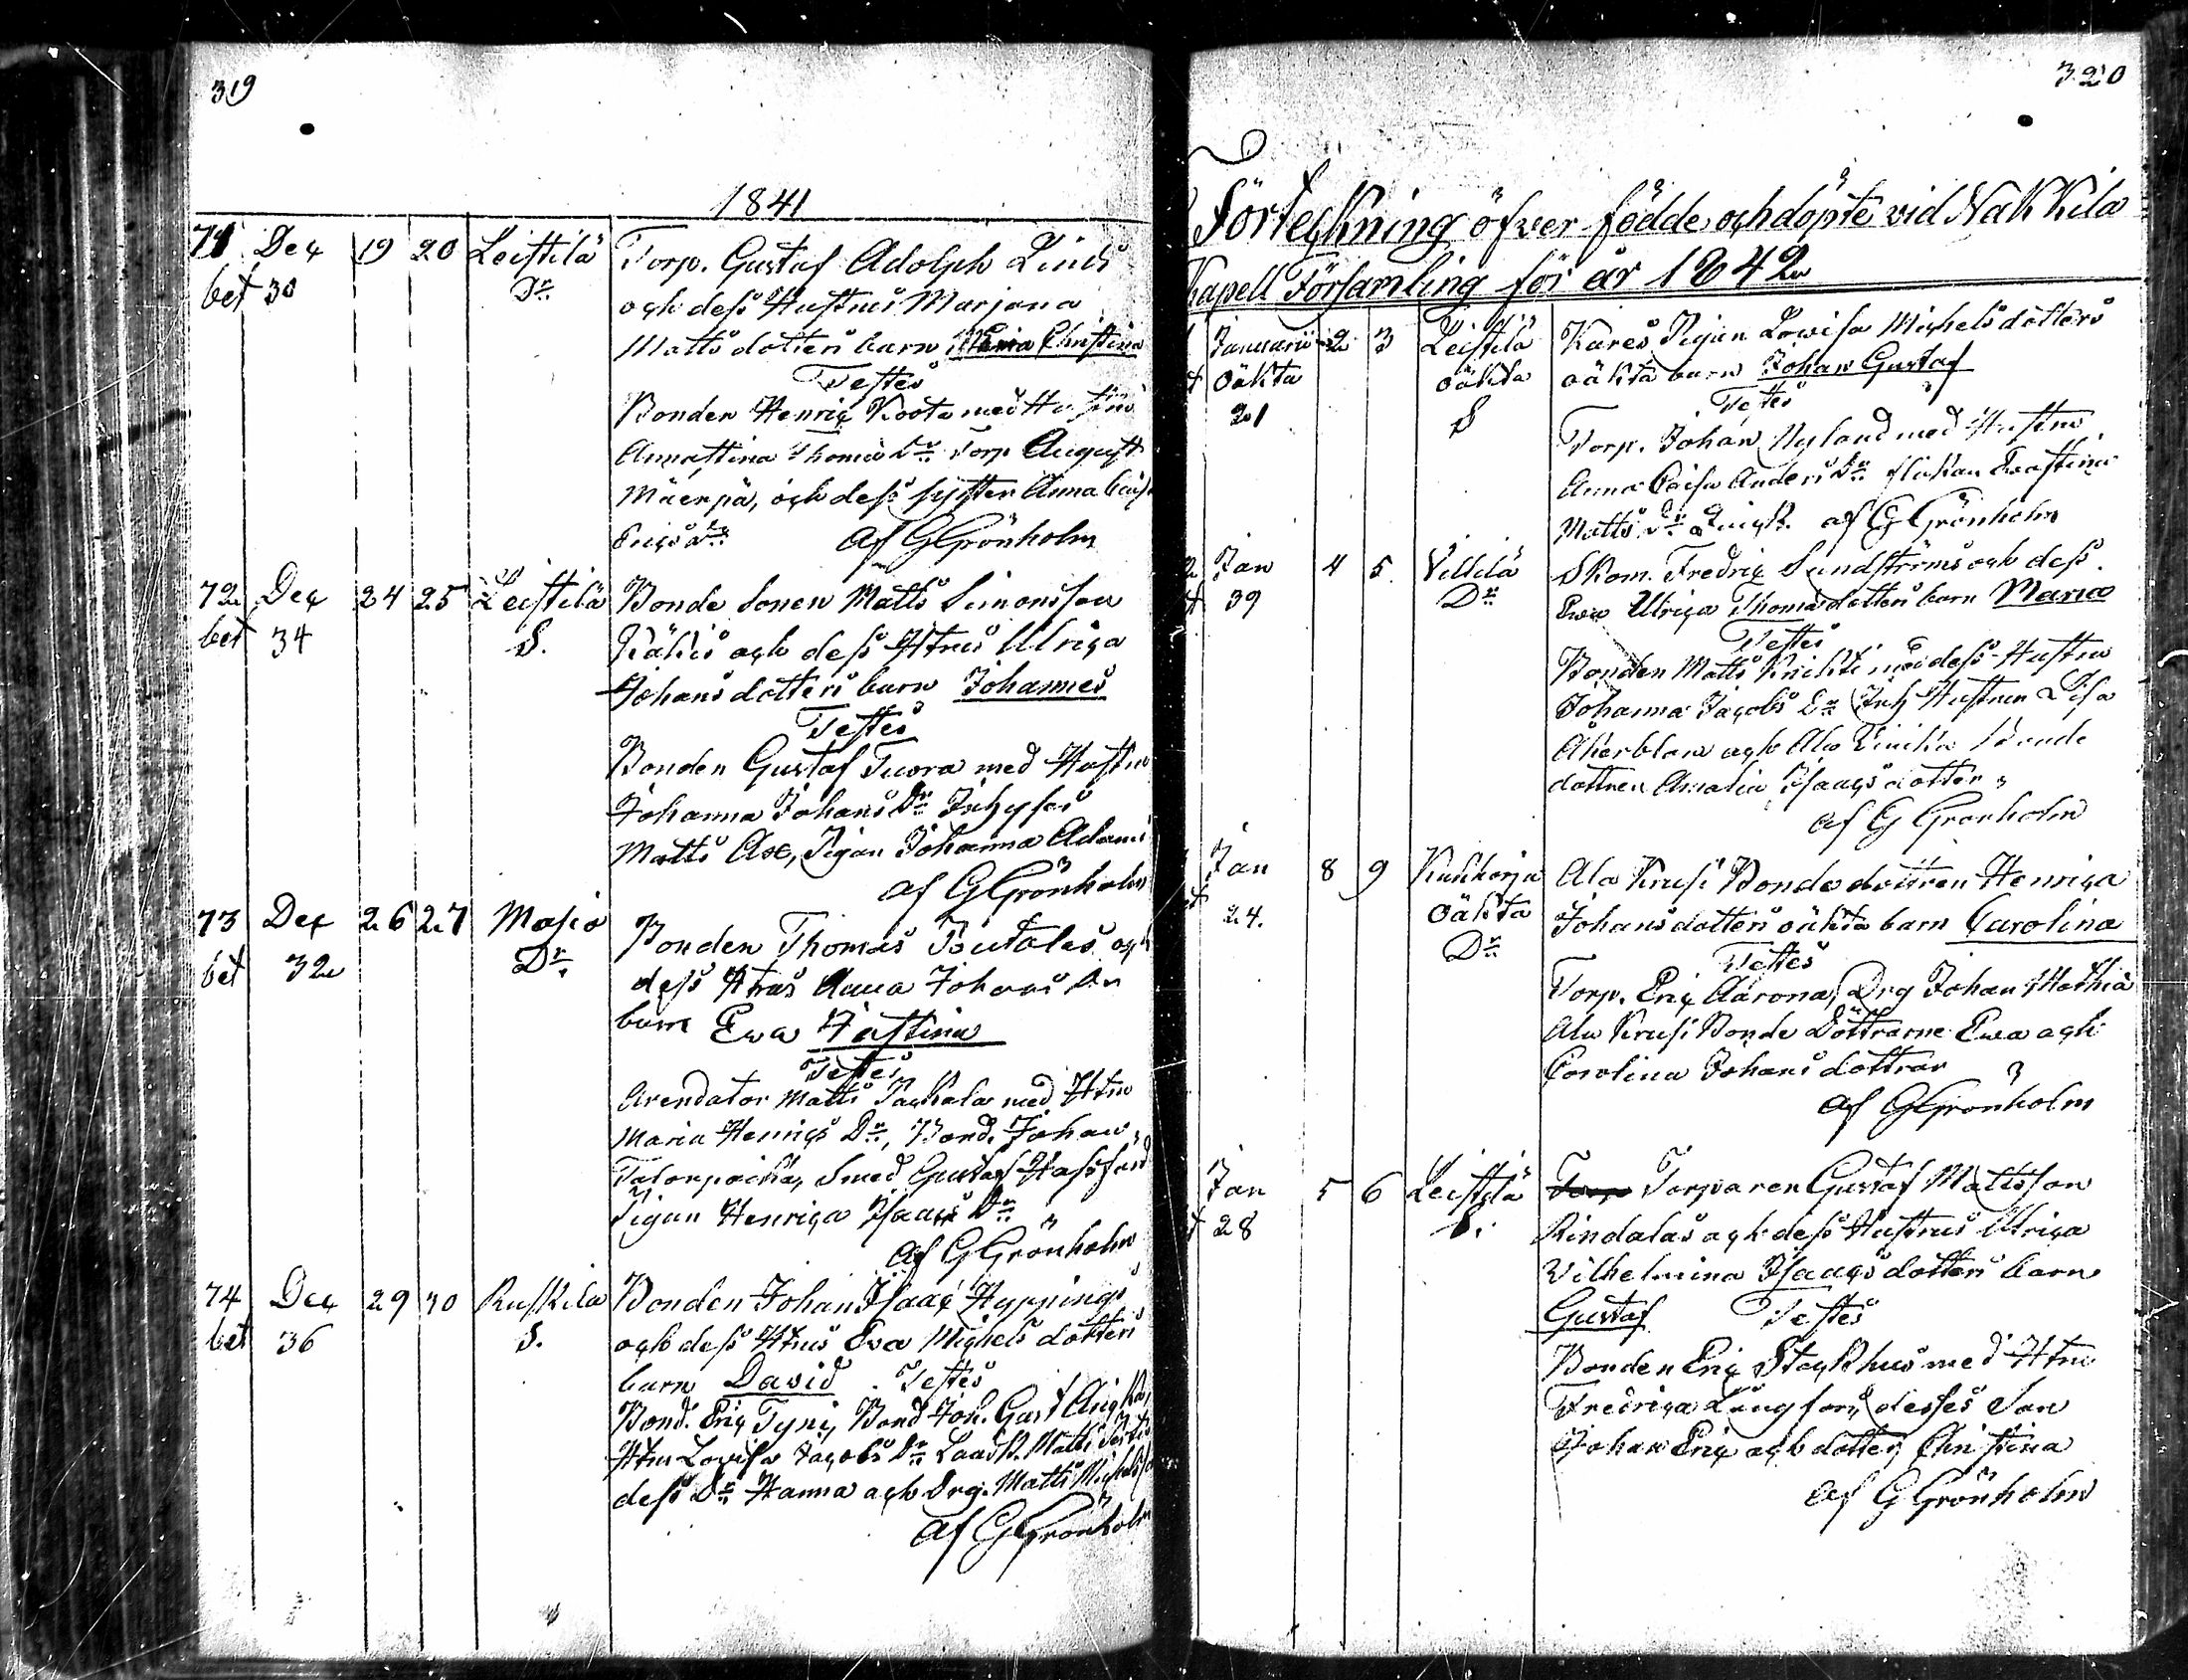 319
1841
71 Dec 19 20 Leistilä Torp. Gustaf Adolph Linds
bet 30 Dr. och dess Hustrus Marjana
Matts dotters barn Maria Christina
Testes
Bonden Henric Koota med Hustru
Annastina Thomæ Dr. Torp August
Mäenpä, och dess syster Anna Caisa
Erics Dr. af G Grönholm
72 Dec 24 25 Leistilä Bonde Sonen Matts Simonsson
bet 34 S. och dess Htrus Ulrica
Johans dotters barn Johannes
Testes
Bonden Gustaf Tuora med Hustru
Johanna Johans Dr. Inhyses
Matts Axe, Pigan Johanna Adami
af G Grönholm
73 Dec 26 27 Masio Bonden Thomas och
bet 32 Dr. dess Htrus Anna Johans Dr
barn Ewa Justina
Testes
Arendator Matts Packala med Htru
Maria Henrics Dr., Bond. Johan
Smed Gustaf
Pigan Henrica Isaacs Dr.
af G Grönholm
74 Dec 29 30 Ruskila Bonden Johan Isaac Hyppings
bet 36 S. och dess Htrus Eva Michels dotters
barn David Testes
Bond. Eric Tyni, Bond Joh. Gust
Htru Lovisa Jacobs Dr. Matts
dess Dr. Hanna och Drg. Matts
af G Grönholm
320
Förteckning öfver födde och döpte vid Nakkila
Kapell Församling för år 1842
Januarii 2 3 Leistilä Kares Pigan Lovisa Michelsdotters
oäkta oäkta oäkta barn Johan Gustaf
21 S Testes
Torp. Johan Nyland med Hustru
Anna Caisa Anders Dr. flickan Evastina
Matts Dr. af G Grönholm
2 Jan 4 5 Villilä Skom. Fredric Sundströms och dess
39 Dr. Ewa Ulrica Thomasdotters barn Maria
Testes
Bonden Matts Krickti med dess Hustru
Johanna Jacobs Dr. Inh Hustrun Lisa
Åkerblom och Ala Bonde
dottren Amalia Isaacs dotter
af G Grönholm
Jan 8 9 Kukkarja Ala Krusi Bonde dottren Henrica
24. oäkta Johans dotters oäkta barn Carolina
Dr. Testes
Torp. Eric Aarona, Drg Johan Mathia
Ala Krusi Bonde Döttrarne Ewa och
Carolina Johans döttrar
af G Grönholm
Jan 5 6 Leistilä Torp Torparen Gustaf Mattsson
28 S. Rindalas och dess Hustrus Ulrica
Wilhelmina Isaacs dotters barn
Gustaf Testes
Bonden Eric Stackhus med Htru
Fredrica Långfors, desses Son
Johan Eric och dotter Christina
af G Grönholm